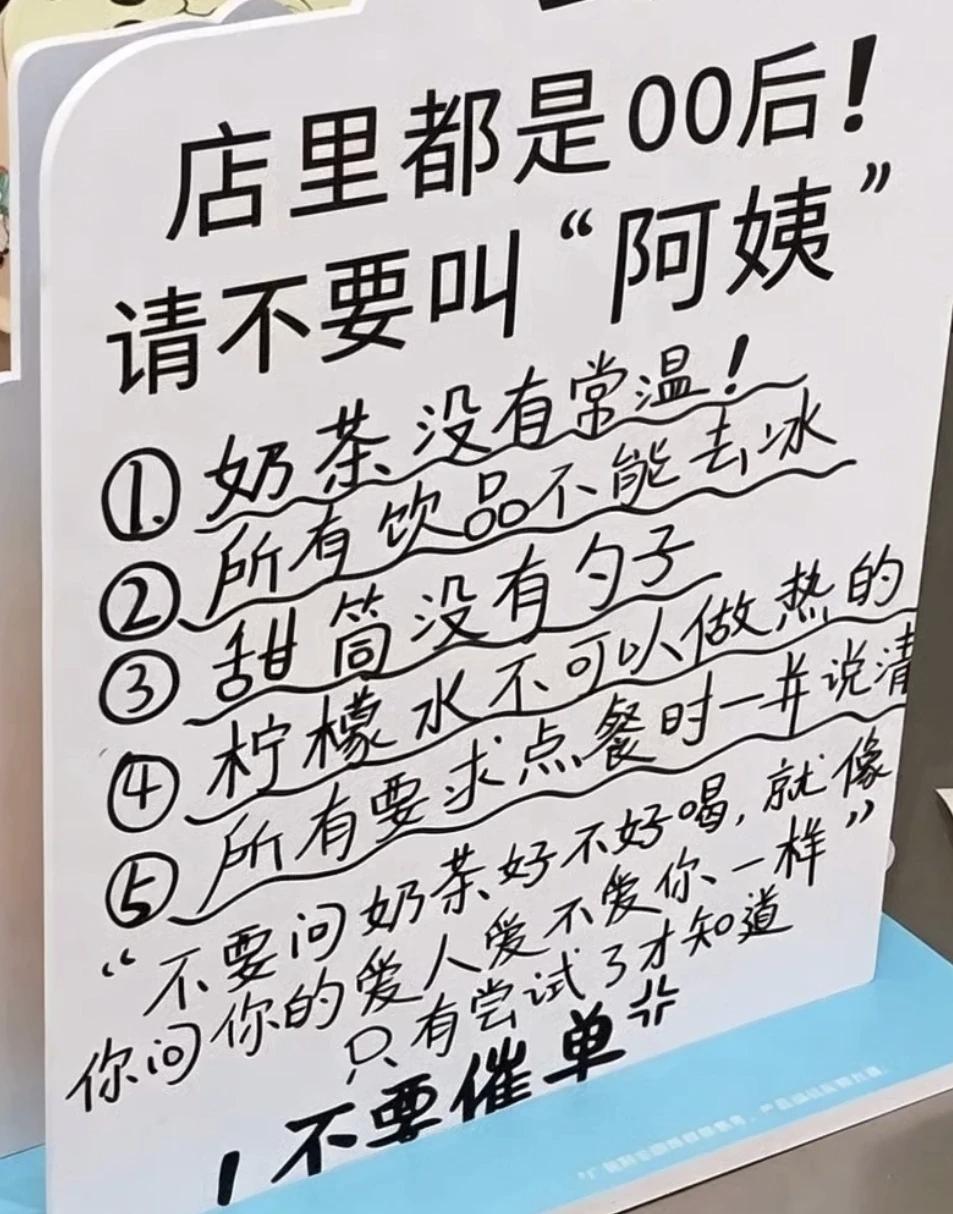 店里都是00后!
请不要叫“阿姨”
①.奶茶没有常温!
②所有饮品不能去冰
③甜筒没有勺子
④柠檬水不可以做热的
⑤所有要求点餐时一并说清
“不要问奶茶好不好喝,就像
你问你的爱人爱不爱你一样”
只有尝试了才知道
!不要催单